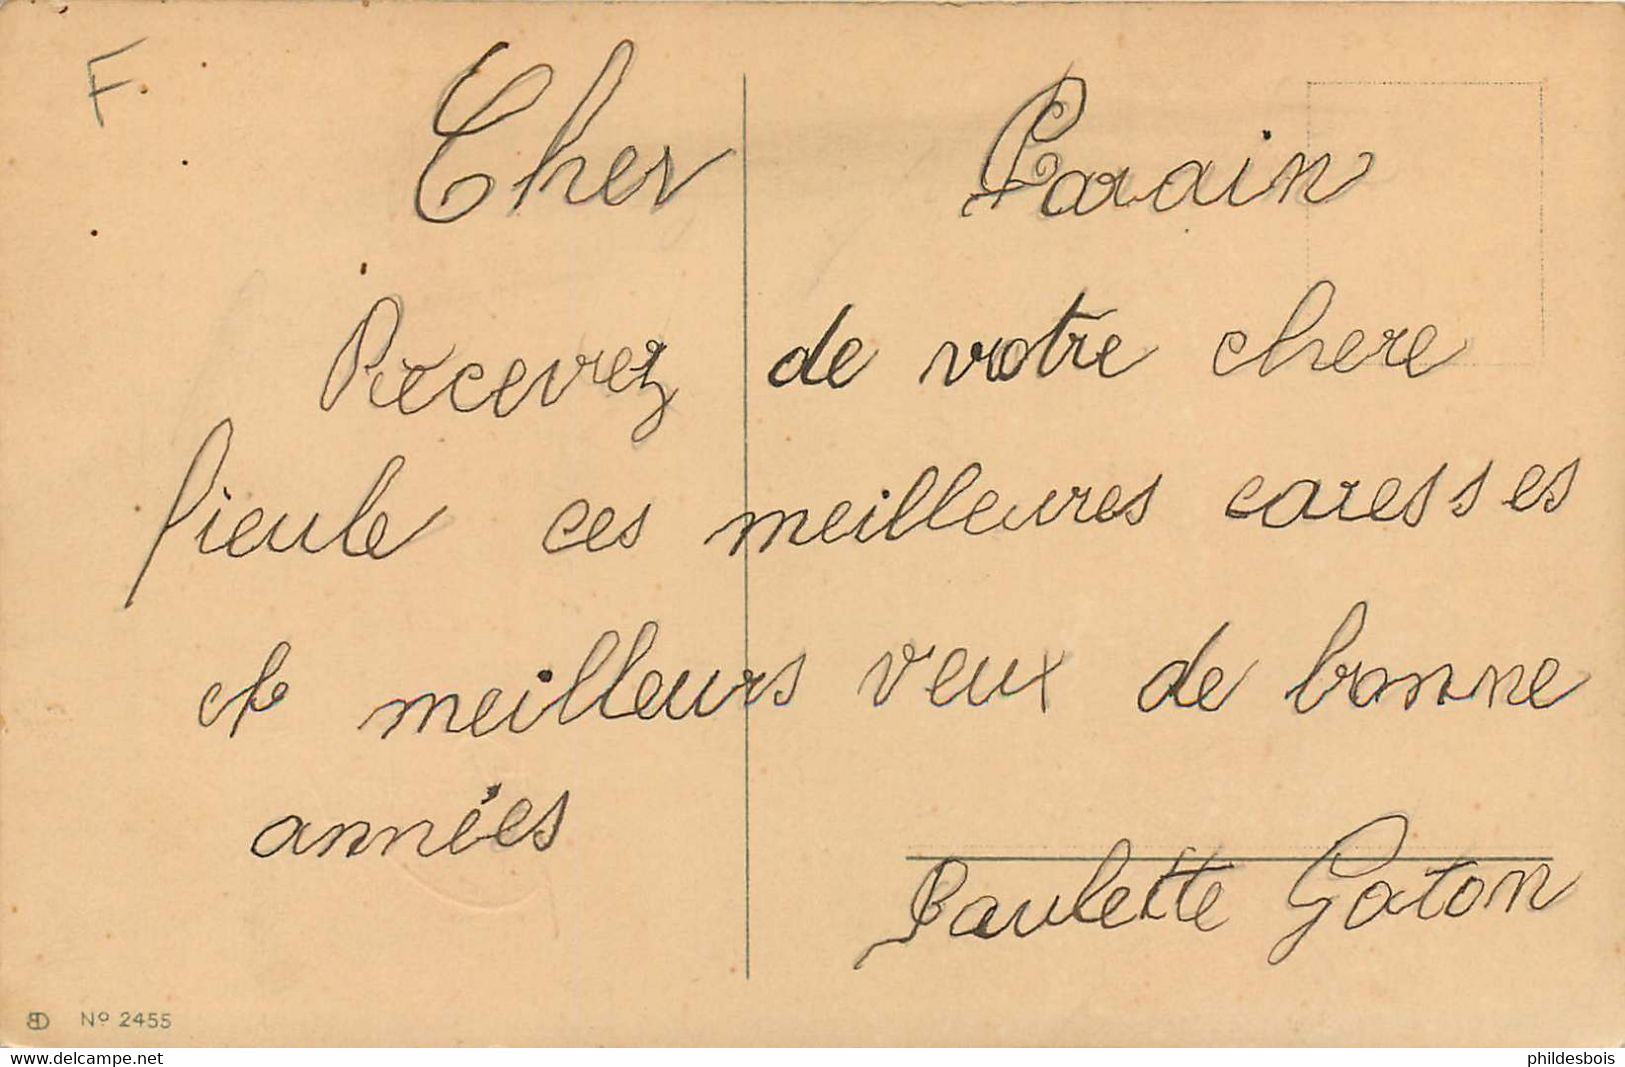 F.
Cher Parain
Recevez de votre chere
fieule ces meilleures caresses
et meilleurs veux de bonne
annéés
Paulette Gaton
BD Nº 2455
www.delcampe.net
phildesbois